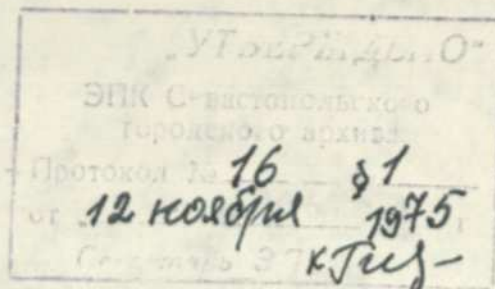 „УТВЕРЖДЕНО“
ЭПК Севастопольского
городского архива
Протокол № 16 § 1
от 12 ноября 1975 г
Секретарь ЭПК